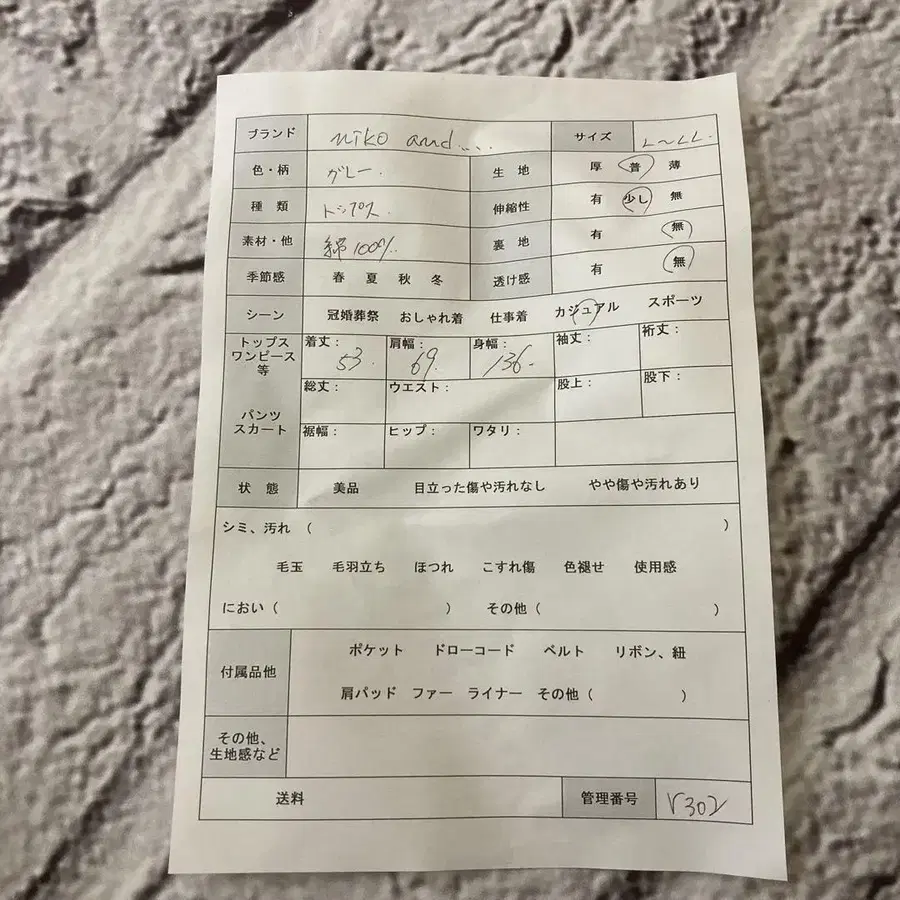 ブランド niko and.... サイズ L〜LL.
色・柄 グレー. 生 地 厚 普 薄
種 類 トップス. 伸縮性 有 少し 無
素材・他 綿100%. 裏 地 有 無
季節感 春 夏 秋 冬 透け感 有 無
シーン 冠婚葬祭 おしゃれ着 仕事着 カジュアル スポーツ
トップス
ワンピース
等
着丈: 肩幅: 身幅: 袖丈: 裄丈:
53. 69. 136.
パンツ
スカート
総丈: ウエスト: 股上: 股下:
裾幅: ヒップ: ワタリ:
状 態 美品 目立った傷や汚れなし やや傷や汚れあり
シミ、汚れ ( )
毛玉 毛羽立ち ほつれ こすれ傷 色褪せ 使用感
におい ( ) その他 ( )
付属品他 ポケット ドローコード ベルト リボン、紐
肩パッド ファー ライナー その他 ( )
その他、
生地感など
送料 管理番号 r302